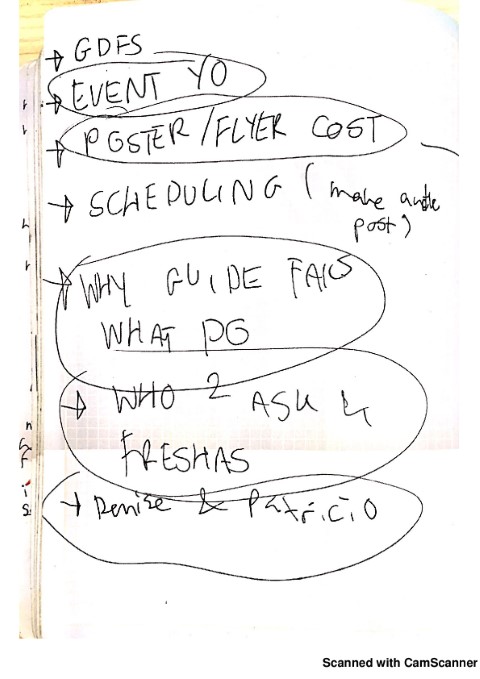 → GDFS
→ EVENT YO
→ POSTER / FLYER COST
→ SCHEDULING ( make
post)
→ WHY GUIDE FAILS
WHAT DO
→ WHO 2 ASK 4
FRESHAS
→ Denise & Patricio
Scanned with CamScanner